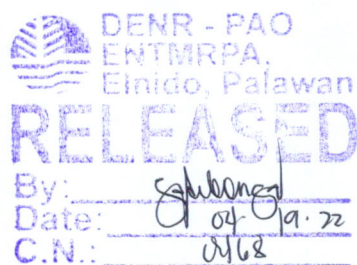 DENR - PAO
ENTMRPA.
Elnido, Palawan
RELEASED
By:
Date: 04 19. 22
C.N.: